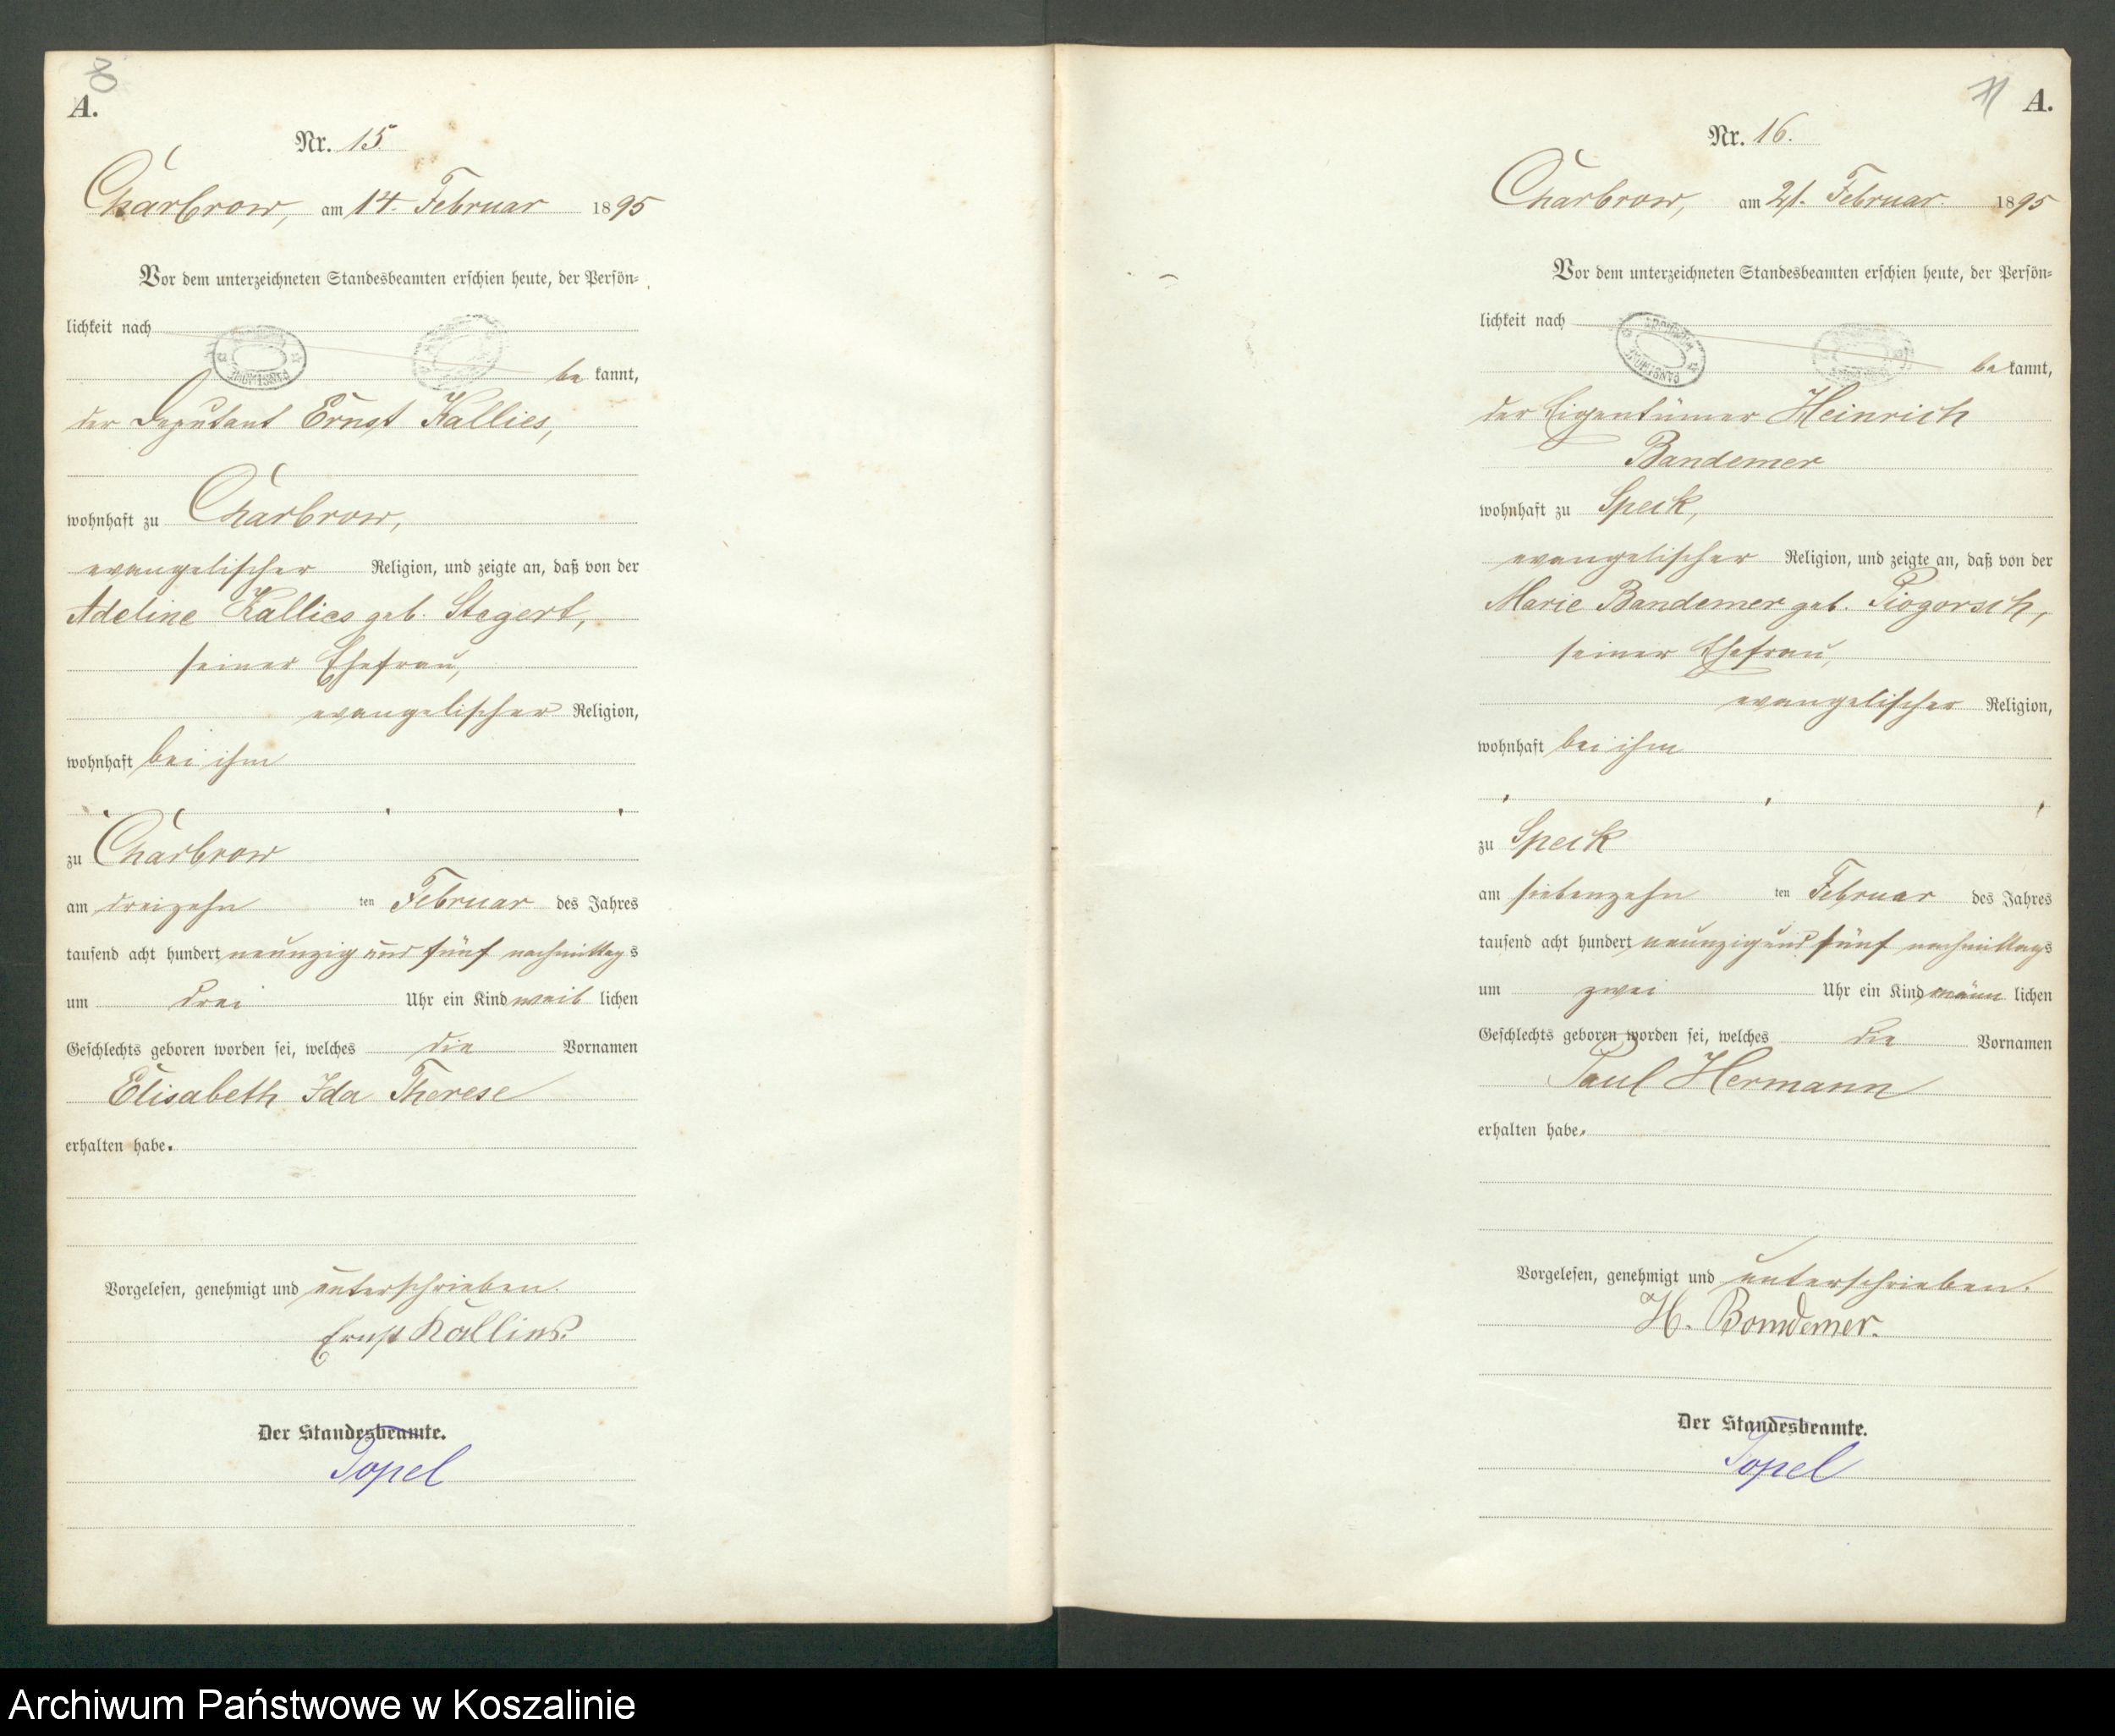 A.
Nr. 15.
Charbrow, am 14. Februar 1895
Vor dem unterzeichneten Standesbeamten erschien heute, der Persön-
lichkeit nach
be kannt,
der Deputant Ernst Kallies,
wohnhaft zu Charbrow,
evangelischer Religion, und zeigte an, daß von der
Adeline Kallies geb. Stegert,
seiner Ehefrau,
evangelischer Religion,
wohnhaft bei ihm
zu Charbrow
am dreizehn ten Februar des Jahres
tausend acht hundert neunzig und fünf nachmittags
um drei Uhr ein Kind weib lichen
Geschlechts geboren worden sei, welches die Vornamen
Elisabeth Ida Therese
erhalten habe.
Vorgelesen, genehmigt und unterschrieben.
Ernst Kallies.
Der Standesbeamte.
Topel
71 A.
Nr. 16.
Charbrow, am 21. Februar. 1895
Vor dem unterzeichneten Standesbeamten erschien heute, der Persön-
lichkeit nach
be kannt,
der Eigentümer Heinrich
Bandemer
wohnhaft zu Speck,
evangelischer Religion, und zeigte an, daß von der
Marie Bandemer geb. Piogorsch,
seiner Ehefrau,
evangelischer Religion,
wohnhaft bei ihm
zu Speck
am siebenzehn ten Februar des Jahres
tausend acht hundert neunzig und fünf nachmittags
um zwei Uhr ein Kind männ lichen
Geschlechts geboren worden sei, welches die Vornamen
Paul Hermann
erhalten habe.
Vorgelesen, genehmigt und unterschrieben.
H. Bandemer.
Der Standesbeamte.
Topel
Archiwum Państwowe w Koszalinie